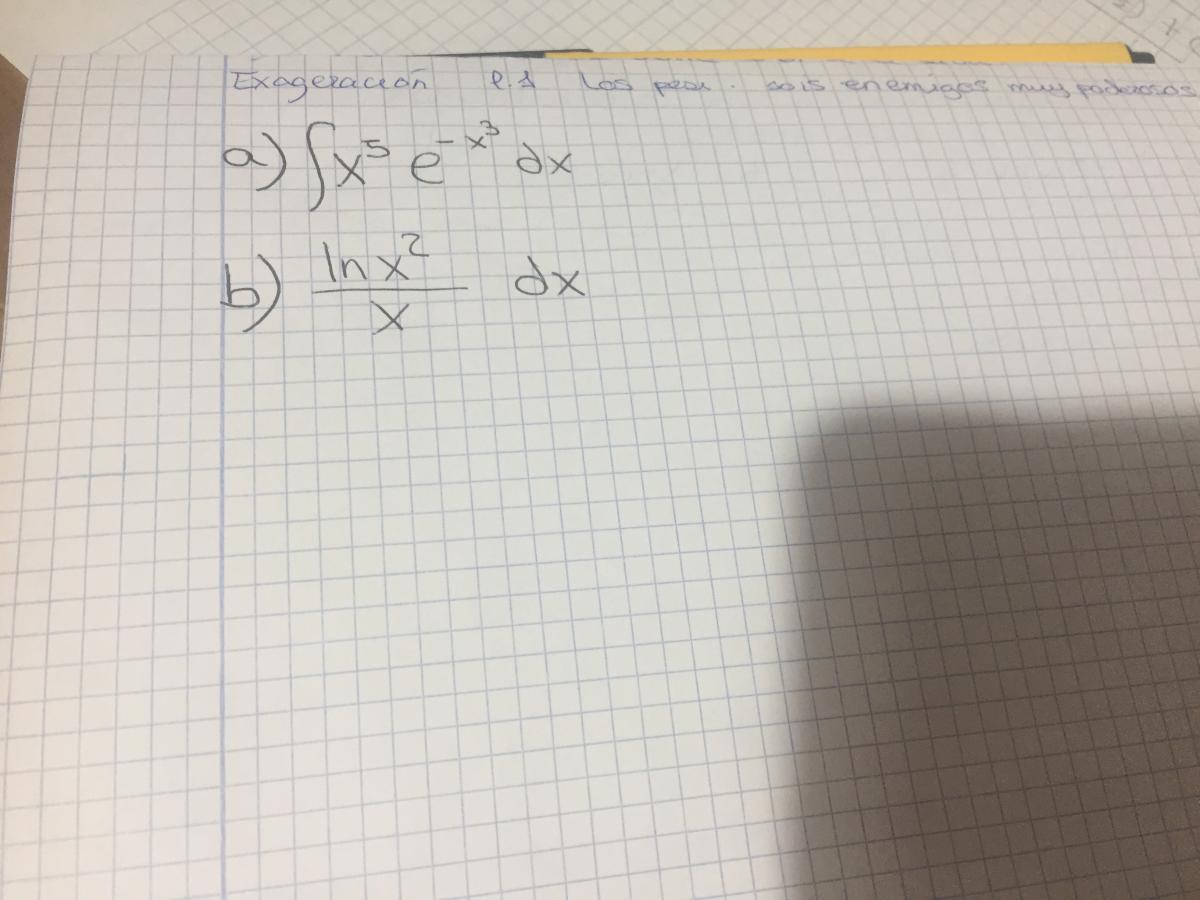 Exageración e.1 Los pesu. sois enemigos muy poderosos
a) ∫x⁵ e^-x³ dx
b) ln x² / x dx